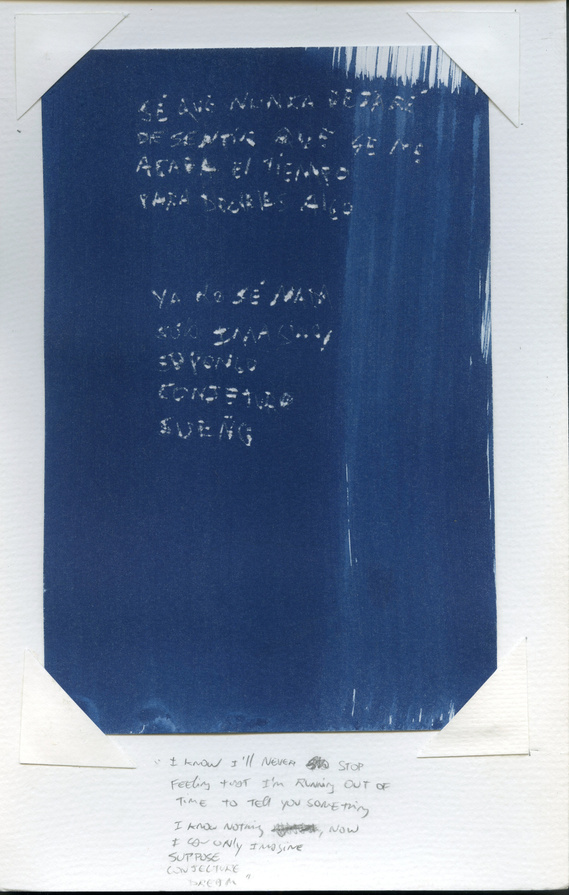 SÉ QUE NUNCA DEJARÉ
DE SENTIR QUE SE ME
ACABA El TIEMPO
PARA DECIRLES AlGO
YA NO SÉ NADA
SÓLO IMAGINO
SUPONGO
CONJETURO
SUEÑO
" I KNOW I'll NEVER STOP
FEELing that I'm RUNNINg OUT OF
TIME TO TEll YOU SOMEThINg
I KNOW NOTHINg , NOW
I CAN ONLY IMAGINE
SUPPOSE
CONJECTURE
DREAM "